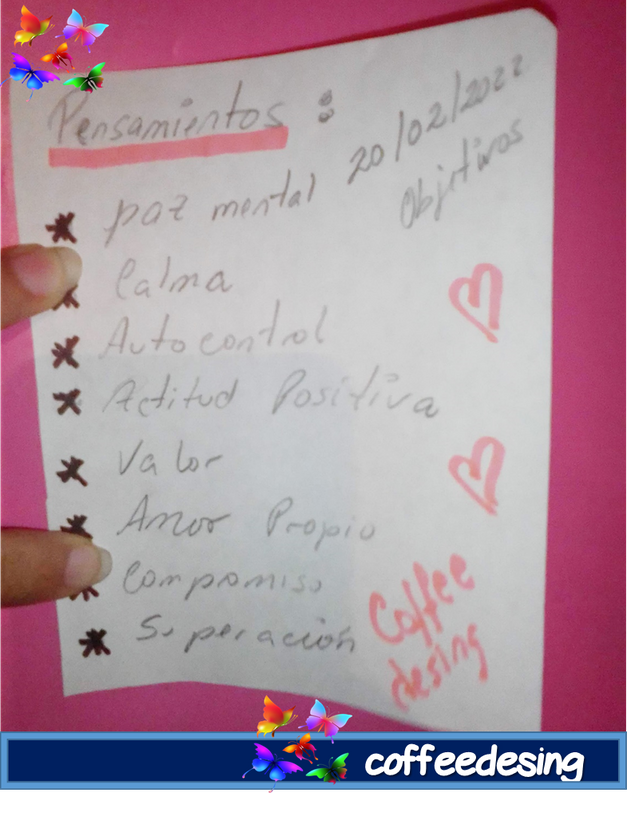 Pensamientos :
20/02/2022
Objetivos
paz mental
Calma
Autocontrol
Actitud Positiva
Valor
Amor Propio
Compomiso
Superación
Coffee
desing
coffeedesing